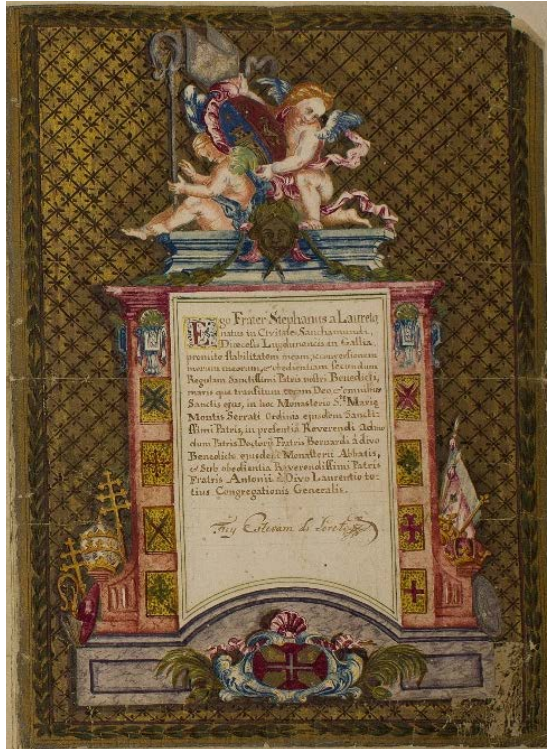 Ego Frater Stephanus a Laureto,
natus in Civitate Sanchamundi,
Diœcesis Lugdunencis in Gallia,
promito stabilitatem meam, & conversionem
morum meorum, & obedientiam secundum
Regulam Sanctissimi Patris nostri Benedicti,
coram Deo & omnibus
Sanctis ejus, in hoc Monasterio Stæ Mariæ
Montis Serrati Ordinis ejusdem Sancti-
ssimi Patris, in presentiâ Reverendi admo
dum Patris Doctoris Fratris Bernardi à divo
Benedicto ejusdem Monasterii Abbatis,
& Sub obedientia Reverendissimi Patris
Fratris Antonii à Divo Laurentio to-
tius Congregationis Generalis.
Frey Estevam do Loreto